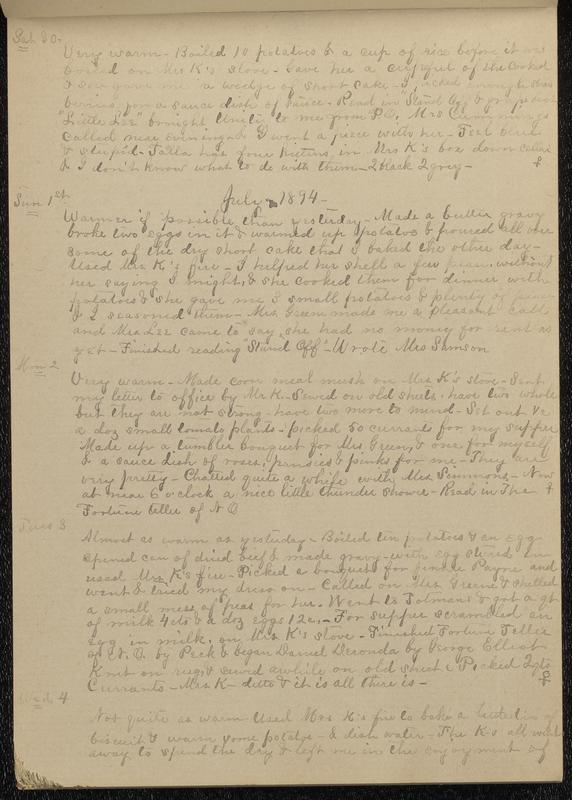 Sat 30.
Very warm - Boiled 10 potatoes & a cup of rice before it was
boiled on Mrs K's stove - Gave her a cupful of the cooked
& she gave me a wedge of short cake - I picked enough
berries for a sauce dish of sauce - Read in "Stand Off" &
"Little Lee" brought Uncle to me from P.O. Mrs Cummings
called near evening & I went a piece with her - Feel blue
& stupid - Talla has four kittens, in Mrs K's box down cellar
& I don't know what to do with them - 2 black 2 grey -
July - 1894 -
Sun 1st
Warmer if possible than yesterday - Made a butter gravy
broke two eggs in it & warmed up potatoes & poured all over
some of the dry short cake that I baked the other day -
Used Mrs K's fire - I helped her shell a few peas, without
her saying I might, & she cooked them for dinner with
potatoes & she gave me 3 small potatoes & plenty of peas
& I seasoned them - Mrs Green made me a pleasant call
and Mrs Lee came to say she had no money for rent as
yet - Finished reading "Stand Off" - Wrote Mrs Samson
Mon 2
Very warm - Made corn meal mush on Mrs K's stove - Sent
my letter to office by Mr K - Sewed on old sheets. have two whole
but they are not strong - have two more to mend - Set out 1/2
a doz small tomato plants - picked so currants for my supper
Made up a tumbler bouquet for Mrs Green, & one for myself
& a sauce dish of roses, pansies & pinks for me - They are
very pretty - Chatted quite a while with Mrs Simmons - Now
at near 6 o'clock a nice little thunder shower - Read in The
Fortune teller of N O
Tues 3
Almost as warm as yesterday - Boiled ten potatoes & an egg
opened can of dried beef & made gravy - with egg stirred in
used Mrs K's fire - Picked a bouquet for Jennie Payne and
went & tried my dress on - Called on Mrs Green & shelled
a small mess of peas for her. Went to Tolmans & got a qt
of milk 4cts & a doz eggs 12c, - For supper scrambled an
egg in milk, on Mrs K's stove - Finished Fortune Teller
of N. O. by Peck & began Daniel Deronda by George Elliot
Knit on rug, & sewed awhile on old sheet & Picked 2 qts
Currants - Mrs K - ditto & it is all there is -
Wed 4
Not quite as warm Used Mrs K's fire to bake a little tin of
biscuit & warm some potatoes - & dish water - The K's all went
away to spend the day & left me in the enjoyment of